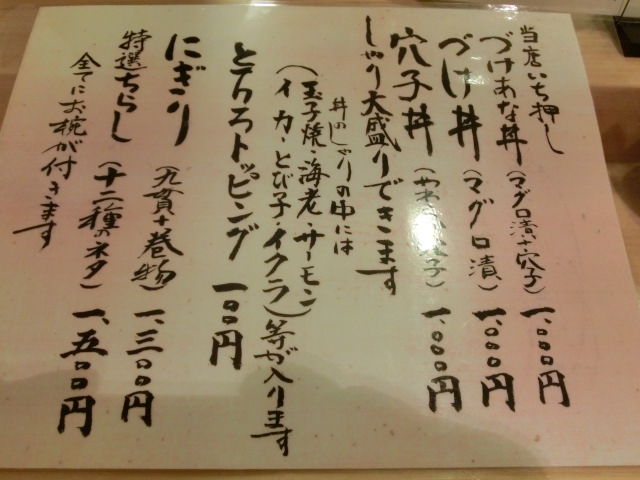 当店いち押し
づけあな丼(マグロ漬+穴子)一、〇〇〇円
づけ丼(マグロ漬)一、〇〇〇円
穴子丼(やわらか穴子)一、〇〇〇円
しゃり大盛りできます
丼のしゃりの中には
(玉子焼・海老・サーモン
イカ・とび子・イクラ)等が入ります
とろろトッピング 一〇〇円
にぎり(九貫+巻物)一、三〇〇円
特選ちらし(十二種のネタ)一、五〇〇円
全てにお椀が付きます